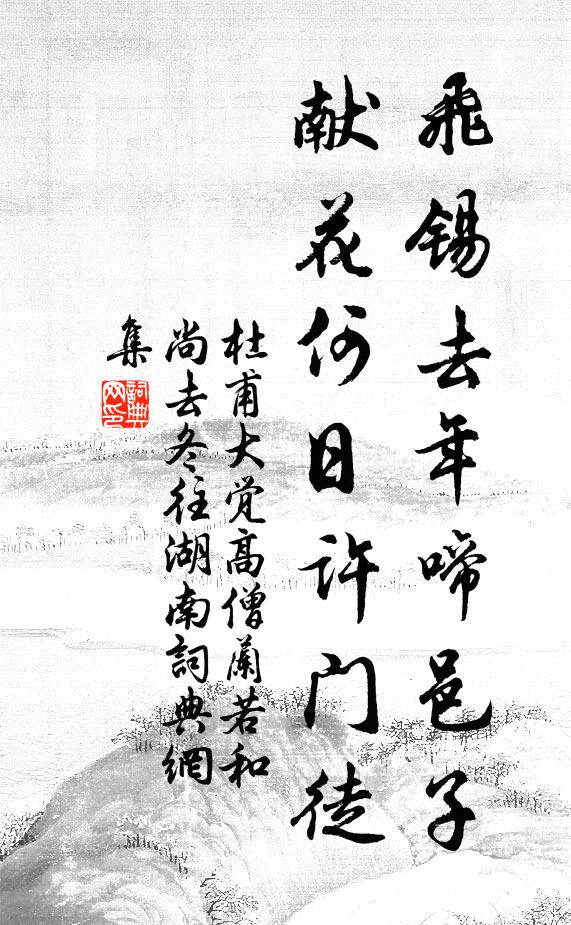 飛锡去年啼邑子
献花何日许门徒
杜甫大觉高僧蘭若和
尚去冬往湖南詞典網
集
詞典
网印